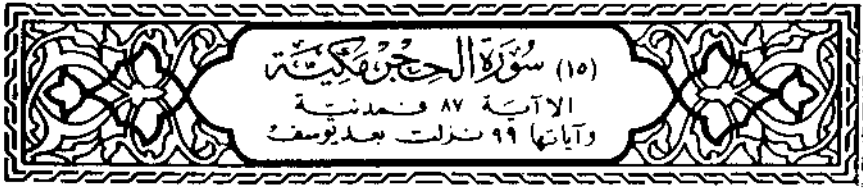 (١٥) سورة الحجر مكية
الا آية ٨٧ فمدنية
وآياتها ٩٩ نزلت بعد يوسف